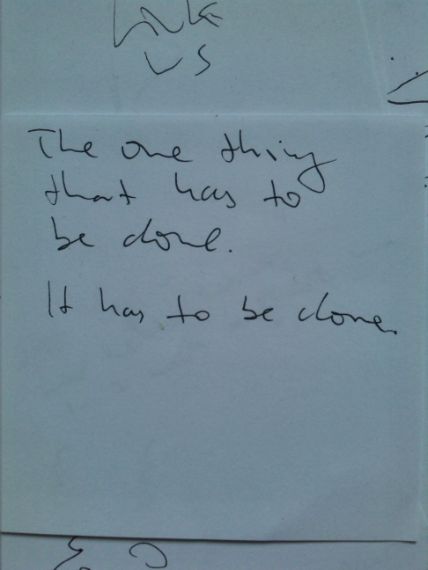 VS
The one thing
that has to
be done.
It has to be done.